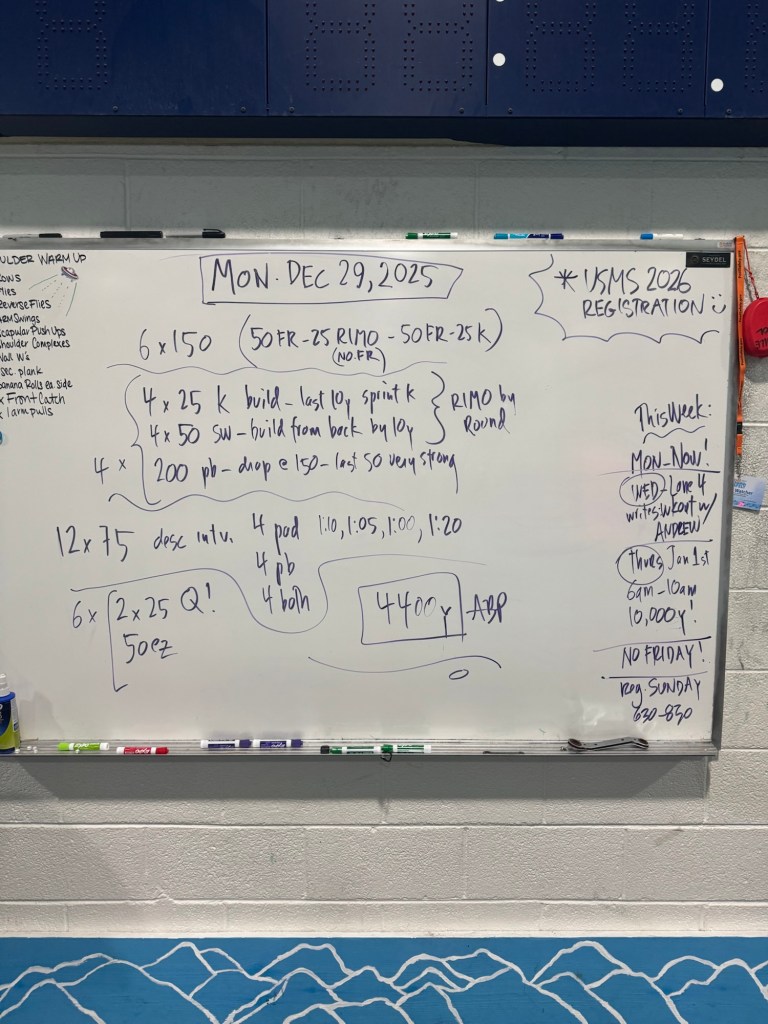 MON. DEC 29, 2025
6 x 150 (50 FR - 25 RIMO - 50 FR - 25 K)
(NO FR)
4 x 25 K build - last 10y sprint k
4 x 50 SW - build from back by 10y
RIMO by
Round
4 x
200 pb - drop @ 150 - last 50 very strong
12 x 75 desc intv. 4 pad 1:10, 1:05, 1:00, 1:20
4 pb
4 both
6 x 2 x 25 Q!
50 ez
4400y ABP
ULDER WARM UP
ows
lies
ReverseFlies
ARM Swings
capular Push Ups
houlder Complexes
Wall W's
sec. plank
banana Rolls ea. side
x Front Catch
x 1 arm pulls
* USMS 2026
REGISTRATION
SEYDEL
This Week:
MON - NOW!
WED - Lane 4
writes wkout w/
ANDREW
Thurs Jan 1st
6am - 10am
10,000y!
NO FRIDAY!
Reg. SUNDAY
630 - 830